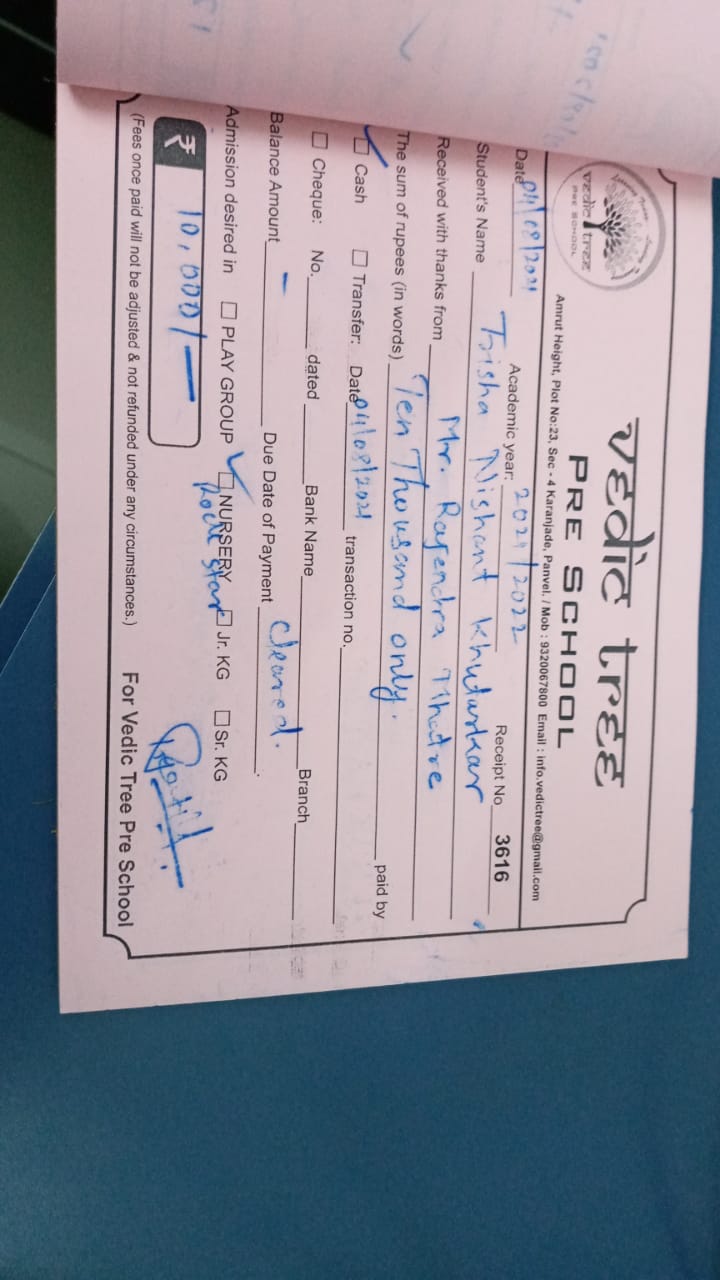 vedic tree
PRE SCHOOL
vedic tree
PRE SCHOOL
Amrut Height, Plot No:23, Sec - 4 Karanjade, Panvel. / Mob : 9320067800 Email : info.vedictree@gmail.com
Date 04/08/2021 Academic year: 2021/2022 Receipt No 3616
Student's Name Trisha Nishant Khutarkar
Received with thanks from Mr. Rajendra Mhatre
The sum of rupees (in words) Ten Thousand only. paid by
Cash Transfer: Date 04/08/2021 transaction no.
Cheque: No. dated Bank Name Branch
Balance Amount - Due Date of Payment cleared.
Admission desired in PLAY GROUP NURSERY Jr. KG Sr. KG
Rock Star
₹ 10,000/-
(Fees once paid will not be adjusted & not refunded under any circumstances.) For Vedic Tree Pre School